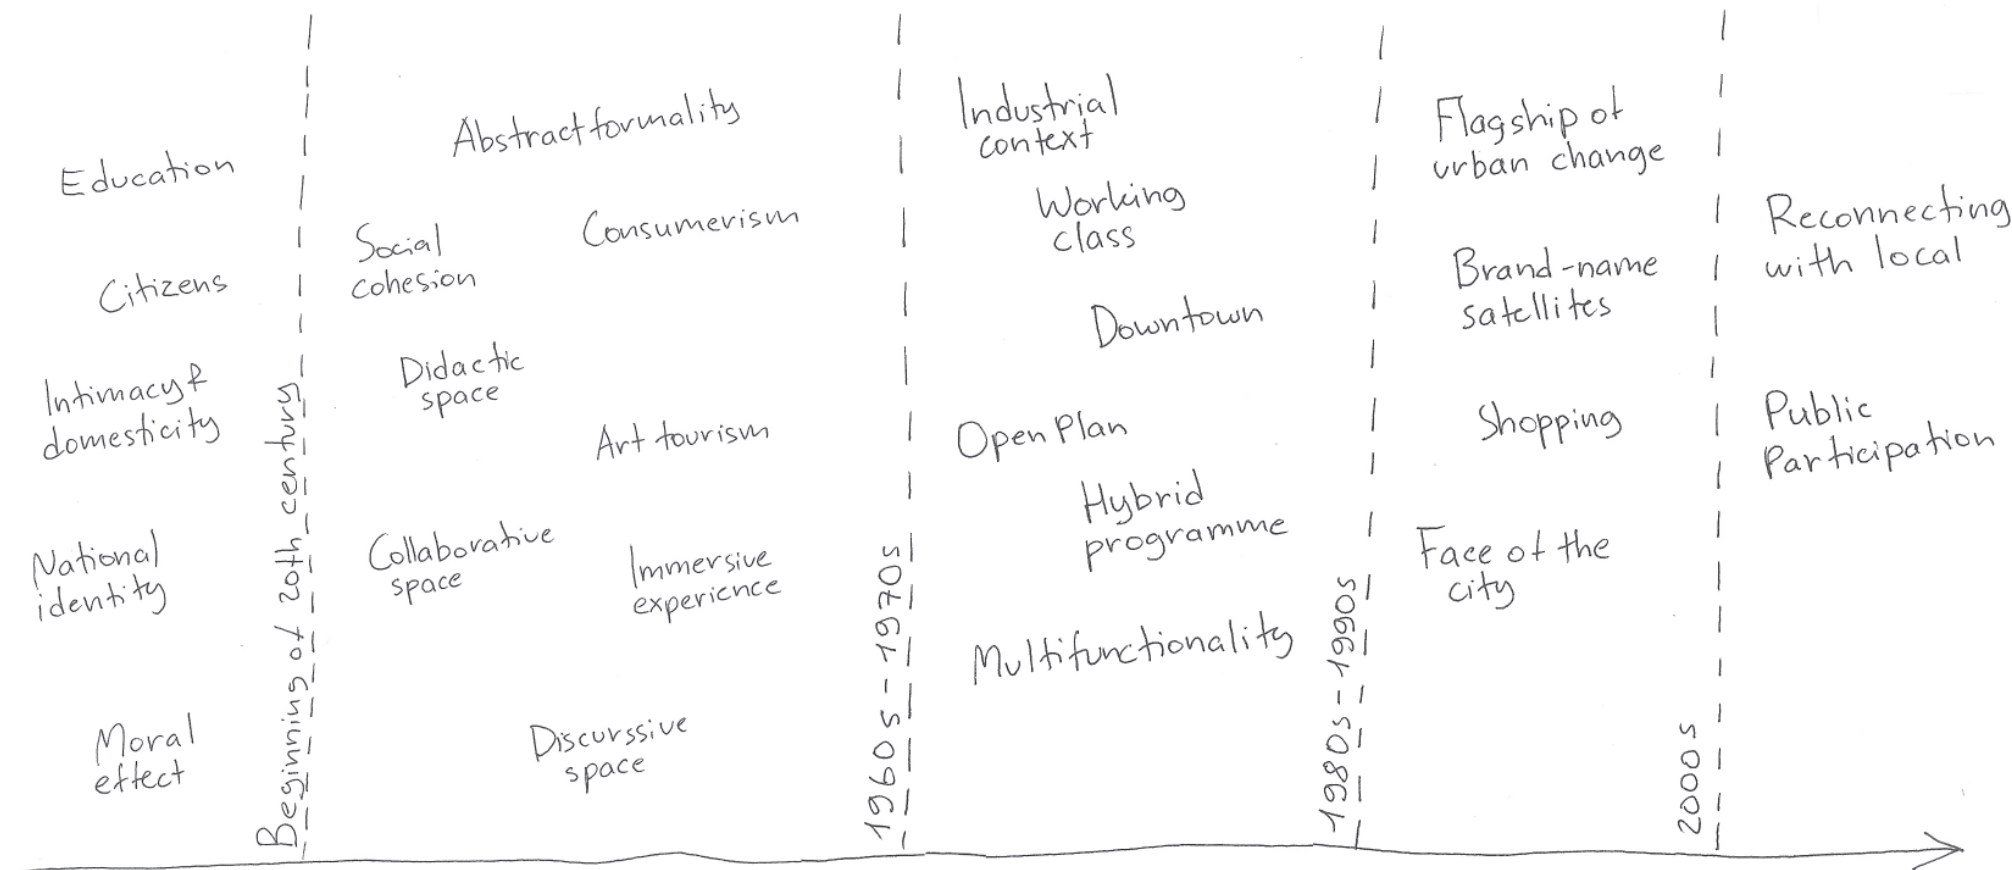 Education
Citizens
Intimacy &
domesticity
National
identity
Moral
effect
Beginning of 20th century
Abstract formality
Social
cohesion
Consumerism
Didactic
space
Art tourism
Collaborative
space
Immersive
experience
Discurssive
space
1960s - 1970s
Industrial
context
Working
class
Downtown
Open Plan
Hybrid
programme
Multifunctionality
1980s - 1990s
Flagship of
urban change
Brand-name
satellites
Shopping
Face of the
city
2000s
Reconnecting
with local
Public
Participation